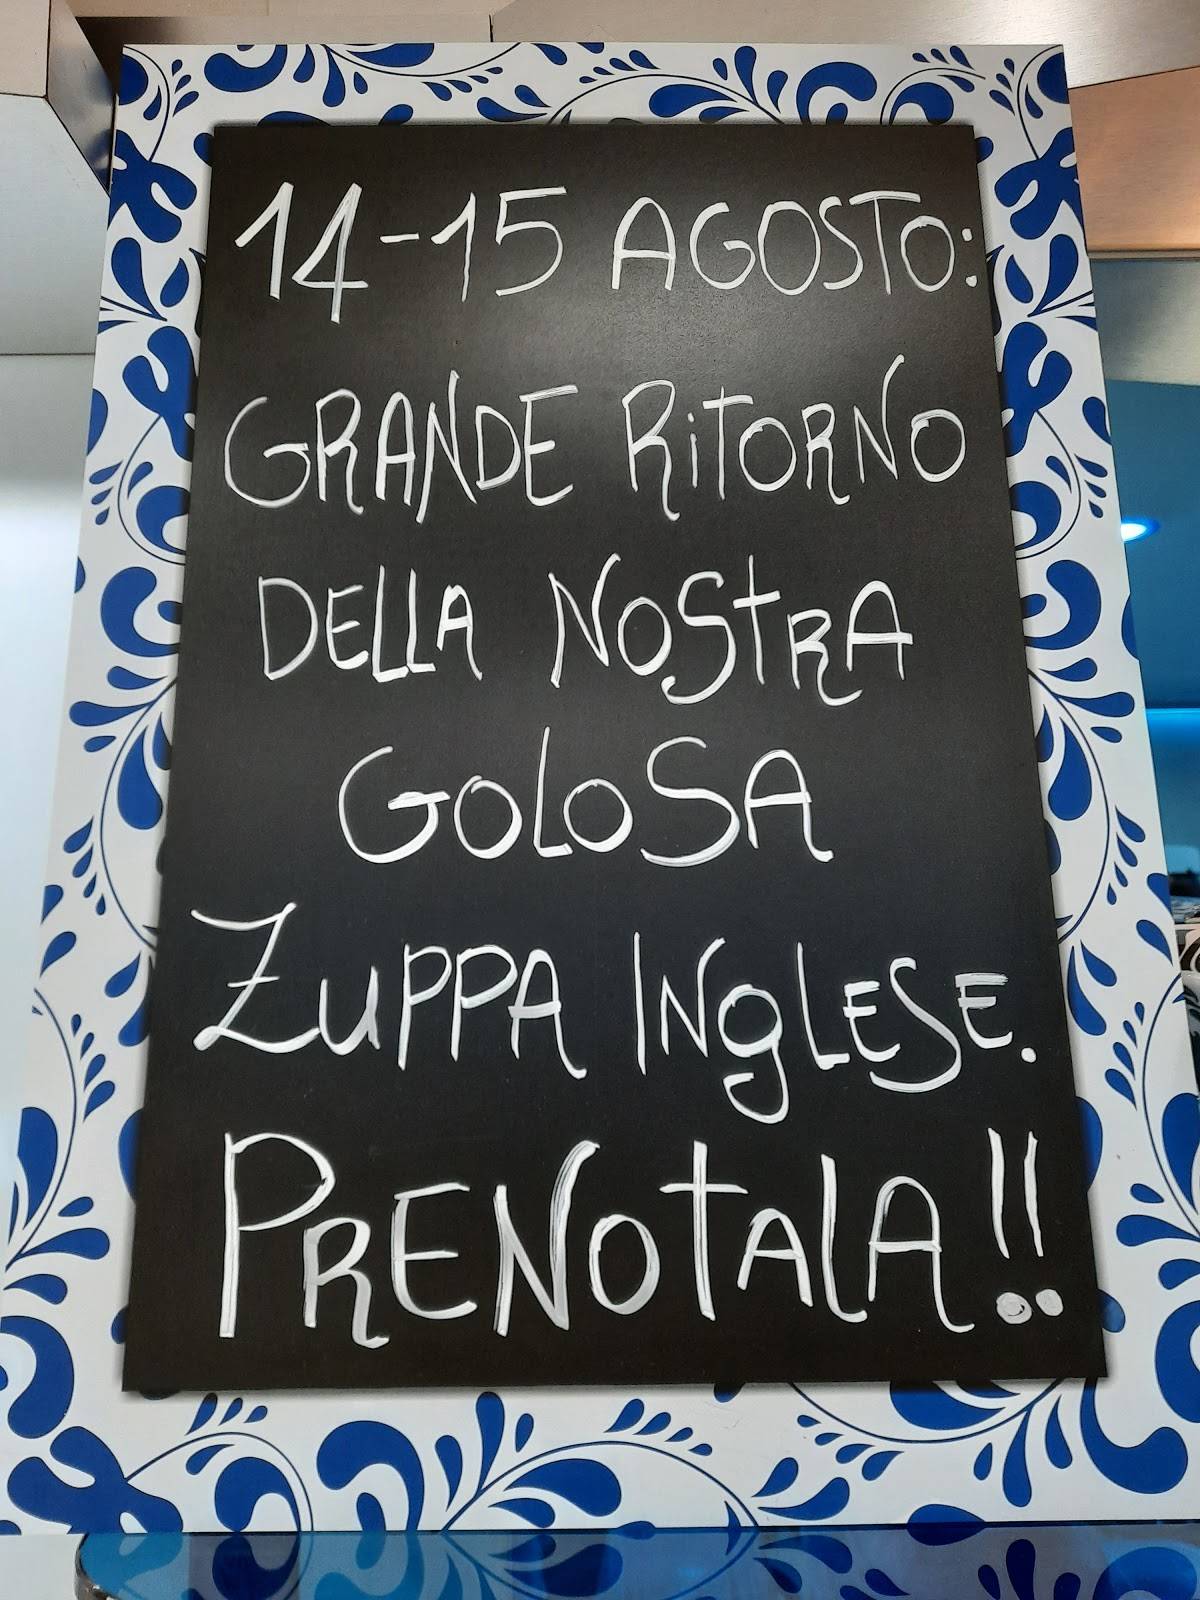 14-15 AGOSTO:
GRANDE RiTORNO
DELLA NOStRA
GOLOSA
ZuPPA INgLESE.
PRENOtALA!!